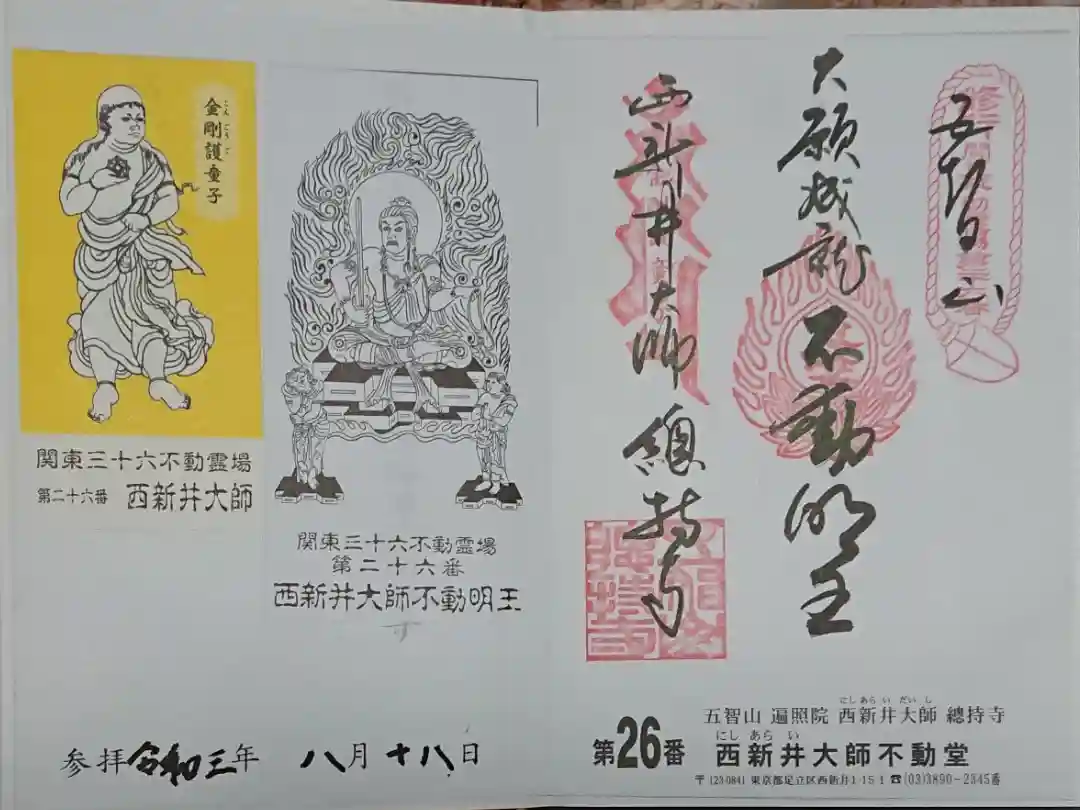 五智山
大願成就
不動明王
西新井大師
總持寺
第26番
五智山 遍照院 西新井大師 總持寺
にしあらい だいし
西新井大師不動堂
にし あらい
〒123-0841 東京都足立区西新井1-15-1 ☎(03)3890-2345番
金剛護童子
こんごうご
関東三十六不動霊場
第二十六番 西新井大師
関東三十六不動霊場
第二十六番
西新井大師不動明王
ず
参拝令和三年 八月十八日